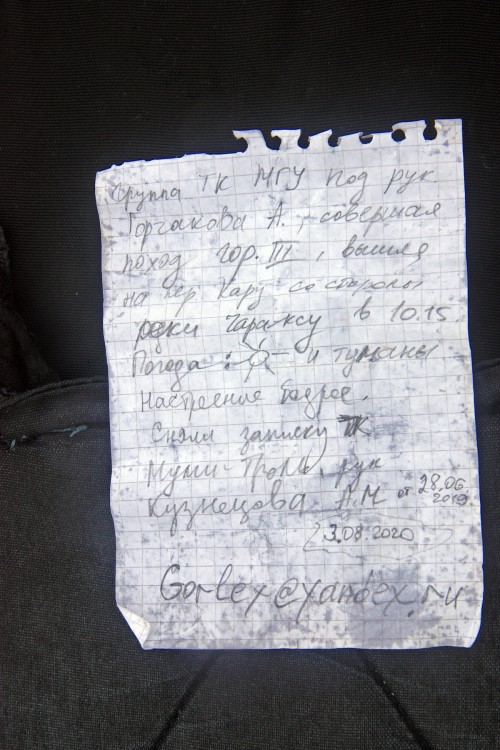 Группа ТК МГУ под рук
Горчакова А., совершая
поход гор. III, вышла
на пер Кару со стороны
реки Чараксу в 10.15
Погода: и туманы
Настроение бодрое.
Сняли записку ТК
Муми-Тролль, рук
Кузнецова А.М от 28.06
2019
3.08.2020
Gorlex@yandex.ru